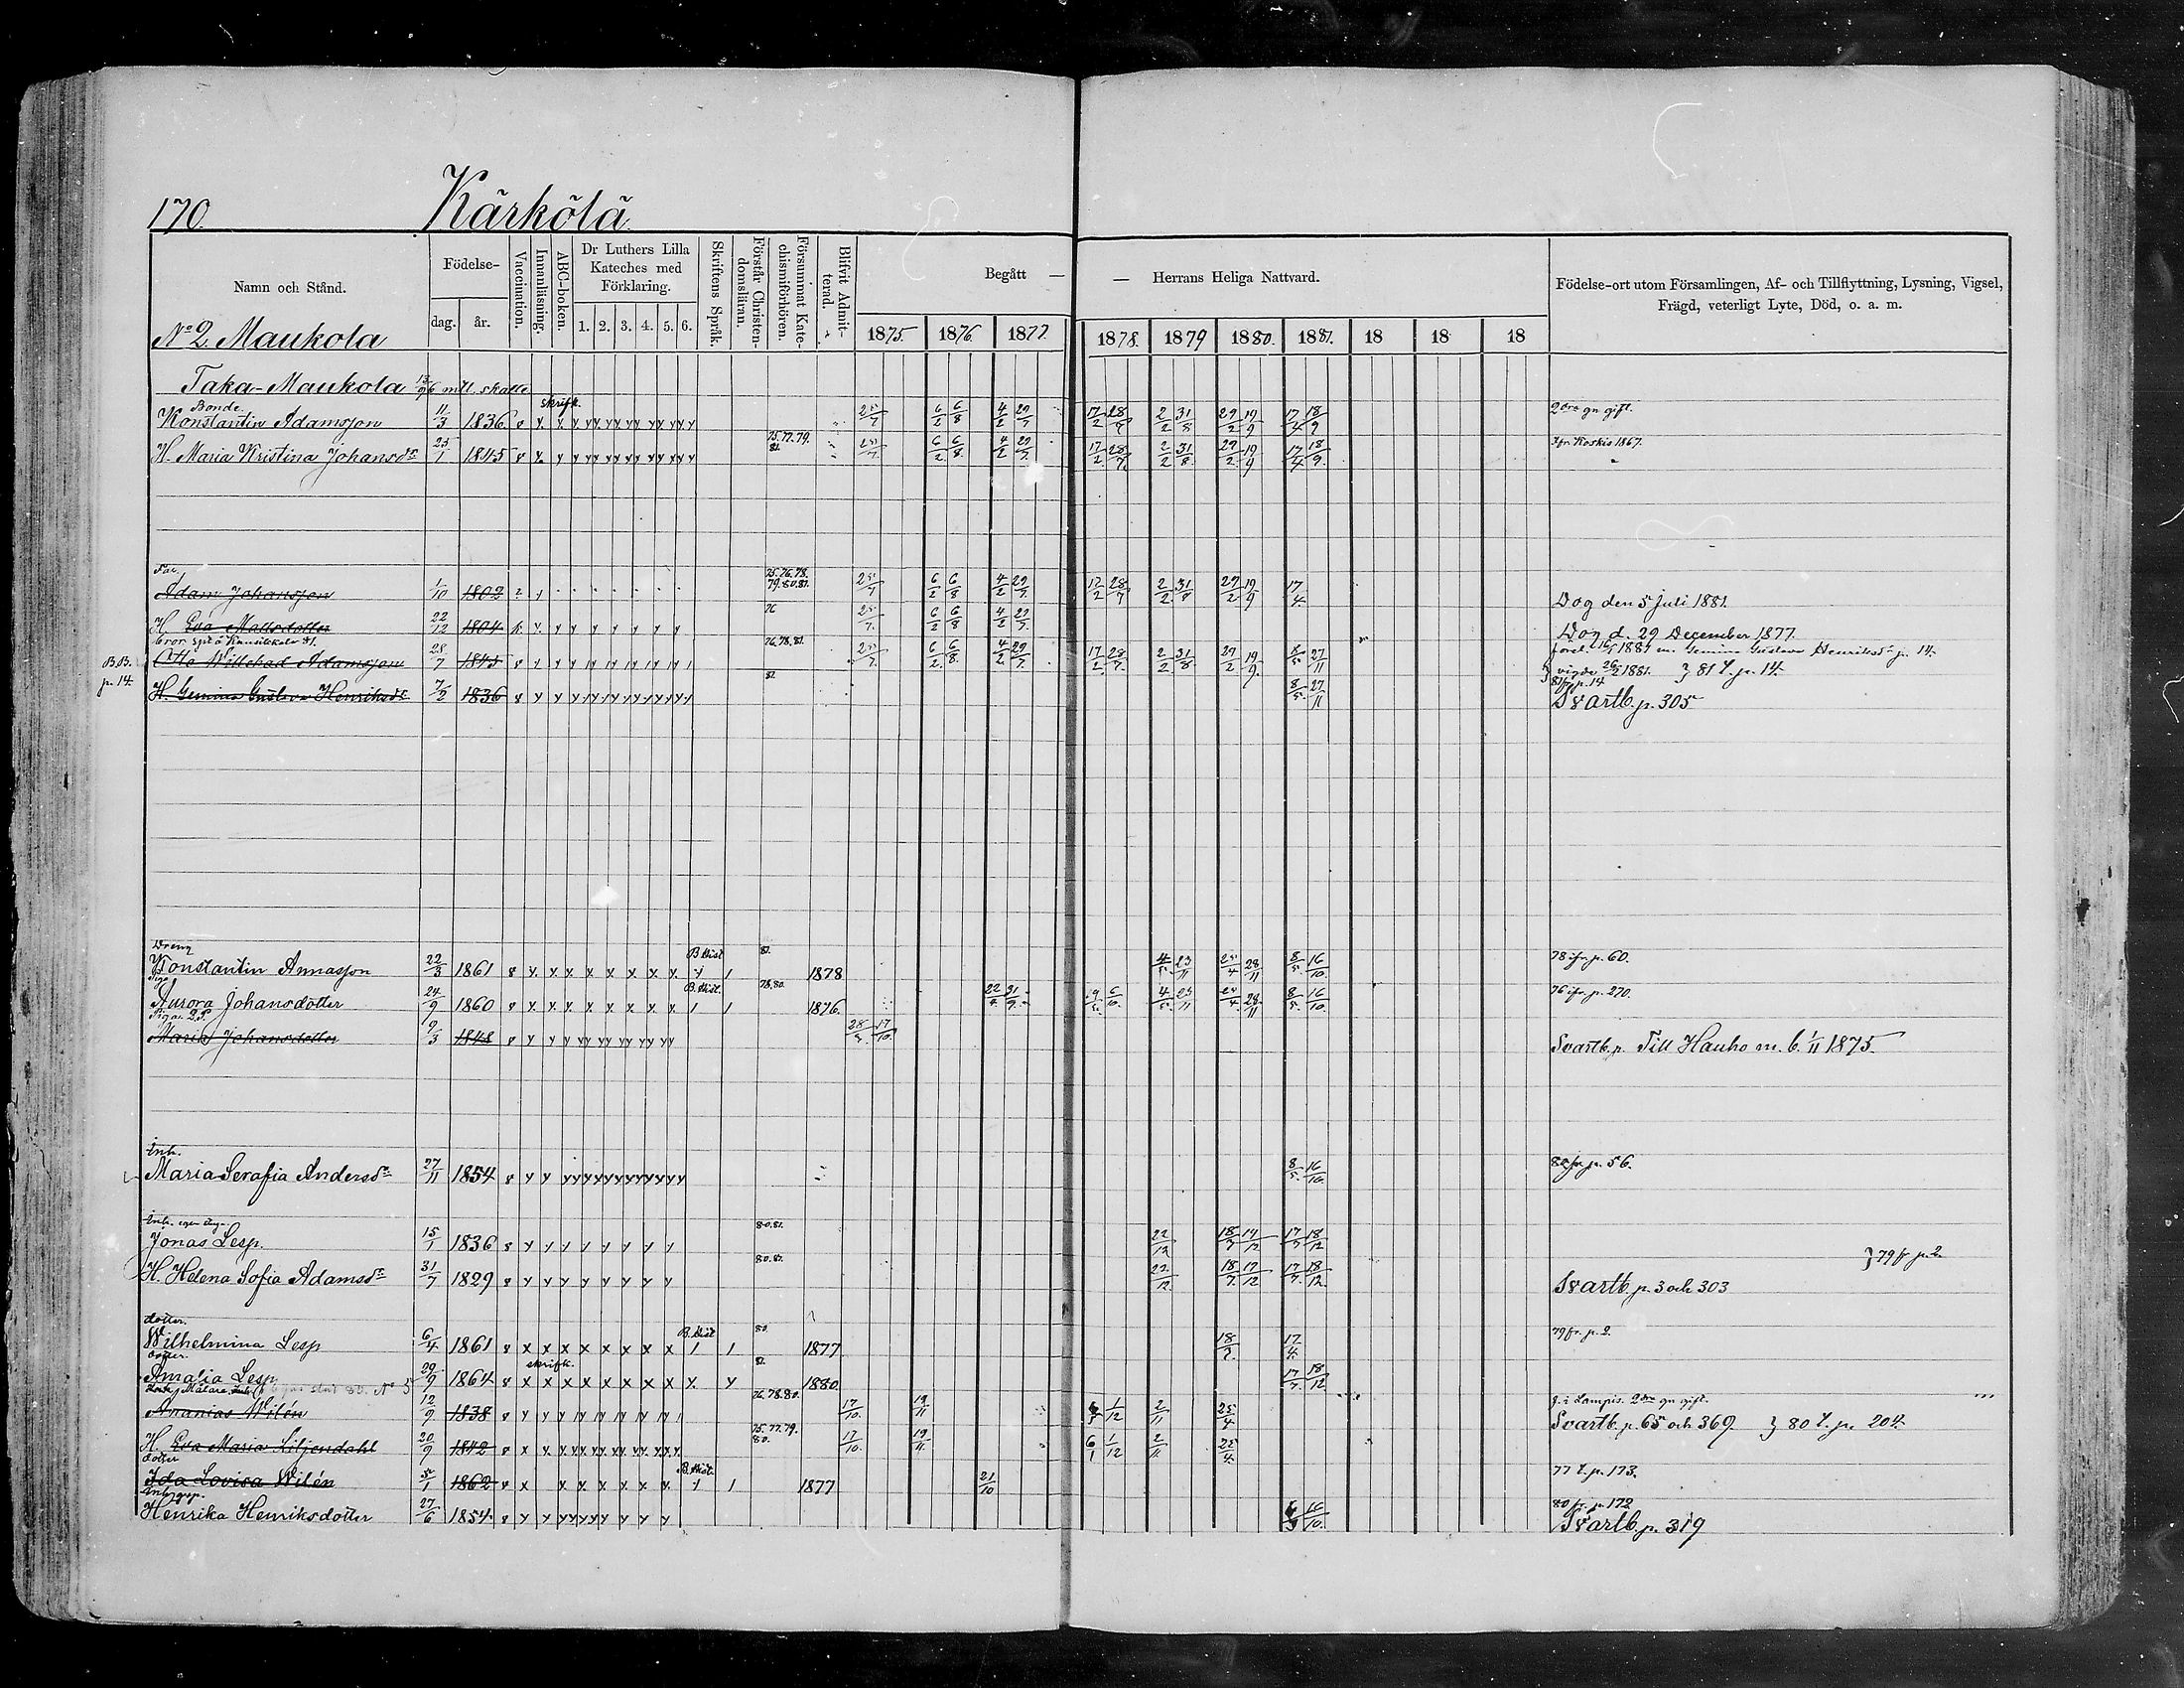 170. Kärkölä
Namn och Stånd.
Födelse-
dag. år.
Vaccination.
Innanläsning.
ABC-boken.
Dr Luthers Lilla Kateches med Förklaring.
1. 2. 3. 4. 5. 6.
Skriftens Språk.
Förstår Christendomsläran.
Försummat Katechismiförhören.
Blifvit Admitterad.
Begått — — Herrans Heliga Nattvard.
1875. 1876. 1877. 1878. 1879 1880. 1881. 18 18 18
Födelse-ort utom Församlingen, Af- och Tillflyttning, Lysning, Vigsel, Frägd, veterligt Lyte, Död, o. a. m.
No 2. Maukola
Taka-Maukola mtl. skatte
Bonde. skrifk.
Konstantin Adamsson 11/3 1836. 25/7 6/2 6/8 4/2 29/7 17/2 28/7 2/2 31/8 29/2 19/9 17/4 18/9 2dra gn gift.
H. Maria Kristina Johansdr 25/1 1845 75.77.79. 81. 25/7 6/2 6/8 4/2 29/7 17/2 28/7 2/2 31/8 29/2 19/9 17/4 18/9 fr Koskis 1867.
Far.
Adam Johansson 1/10 1802 75.76.78. 79.80.81. 25/7 6/2 6/8 4/2 29/7 17/2 28/7 2/2 31/8 29/2 19/9 17/4 Dog den 5 Juli 1881.
H. Eva Mattsdotter 22/12 1804 76 25/7 6/2 6/8 4/2 29/7 Dog d. 29 December 1877.
Otto Willehad Adamsson 28/7 1845 76.78.81. 25/7 6/2 6/8 4/2 29/7 17/2 28/7 2/2 31/8 29/2 19/9 8/5 27/11 1881 m. Gemina Gustava Henriksdr p. 14.
B.B. p. 14. vigde 26/5 1881. } 81 t. p. 14.
H. Gemina Gustava Henriksdr 7/2 1836 81 8/5 27/11 81 fr p. 14
Svartb. p. 305
Dreng
Konstantin Annasson 22/3 1861 B. Hist 81. 1878 4/5 23/11 25/4 28/11 8/5 16/10 78 ifr p. 60.
Piga
Aurora Johansdotter 24/9 1860 B. Hist. 78.80. 1876. 4/5 23/11 25/4 28/11 8/5 16/10 76 ifr p. 270.
Pigan
Maria Johansdotter 9/3 1848 17/10. Svartb. p. Till Hauho m. b. 1/11 1875.
Inh.
Maria Serafia Andersdr 27/11 1854 8/5 16/10 p. 56.
Inh.
Jonas Lesp. 15/1 1836 80.81. 22/12 18/7 17/12 17/7 18/12
H. Helena Sofia Adamsdr 31/7 1829 80.81. 22/12 18/7 17/12 17/7 18/12 } 79 fr p. 2
Svartb. p. 3 och 303
dotter.
Wilhelmina Lesp 6/4 1861 B. Hist 80 1877 18/7 17/4 79 fr. p. 2.
dotter. skrifk.
Amalia Lesp 29/9 1864 1880. 17/7 18/12
Ananias Wilén 12/9 1838 76.78.80. 17/10. 19/11 6/1 1/12 2/11 25/4 f. i Lampis. 2dra gn gift.
Svartb. p. 65 och 369. } 80 t. p. 204.
H. Eva Maria Liljendahl 20/9 1842 75.77.79. 80. 17/10. 19/11 6/1 1/12 2/11 25/4
dotter
Ida Lovisa Wilén 5/1 1862 B. Hist. 1877 21/10 77 t. p. 173.
Henrika Henriksdotter 27/6 1854 16/10. 80 fr. p. 172
Svartb. p. 319